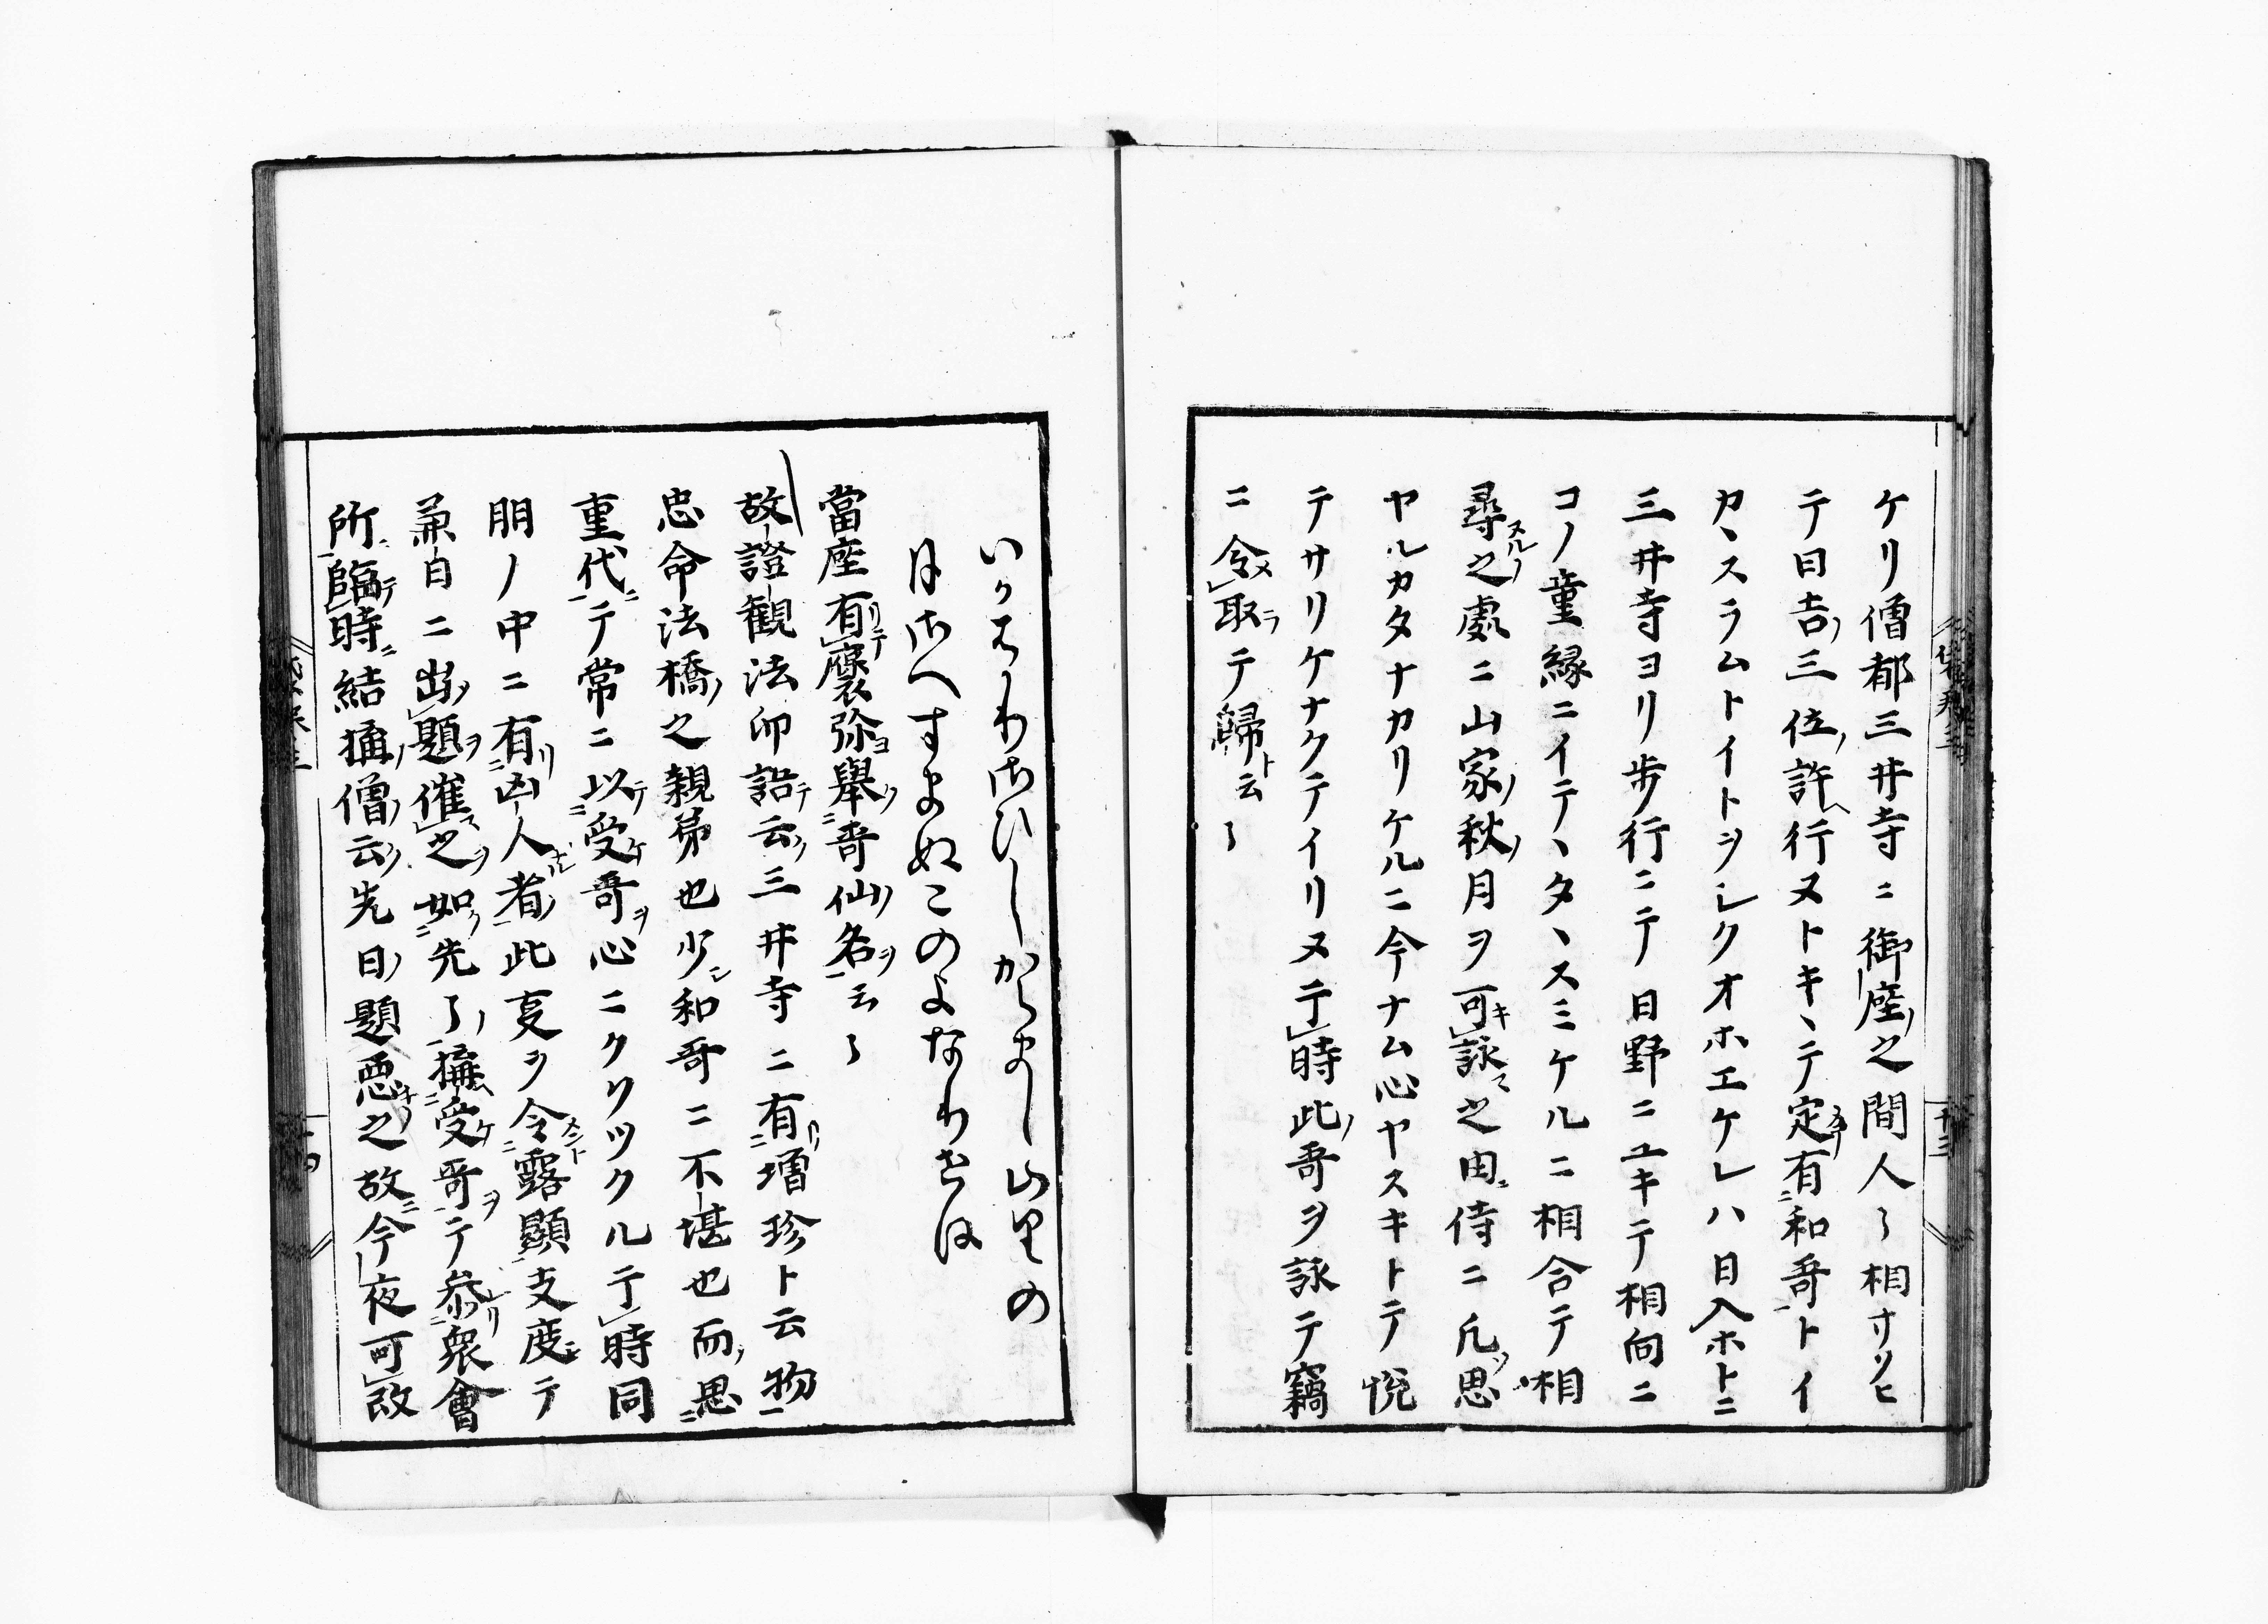 ケリ僧都三井寺ニ御座之間人々相オソヒ
テ日吉三位許行ヌトキヽテ定有和哥トイ
カヽスラムトイトヲシクオホエケレハ日入ホトニ
三井寺ヨリ歩行ニテ日野ニユキテ相向ニ
コノ童縁ニイテヽタヽスミケルニ相合テ相
尋之處ニ山家秋月ヲ可詠之由侍ニ凡思
ヤルカタナカリケルニ今ナム心ヤスキトテ悦
テサリケナクテイリヌ于時此哥ヲ詠テ竊
ニ令取テ歸ト云々
いかはかりさひしからまし山里の
月さへすまぬこのよなりせは
當座有褒弥舉哥仙名云々
故證観法印語云三井寺ニ有増珍ト云物
忠命法橋之親弟也少和哥ニ不堪也而思
重代テ常ニ以受哥心ニクリツクル于時同
朋ノ中ニ有凶人者此叓ヲ令露顯支度テ
兼日ニ出題催之如先々搆受哥テ參衆會
所臨時結搆僧云先日題悪之故今夜可改